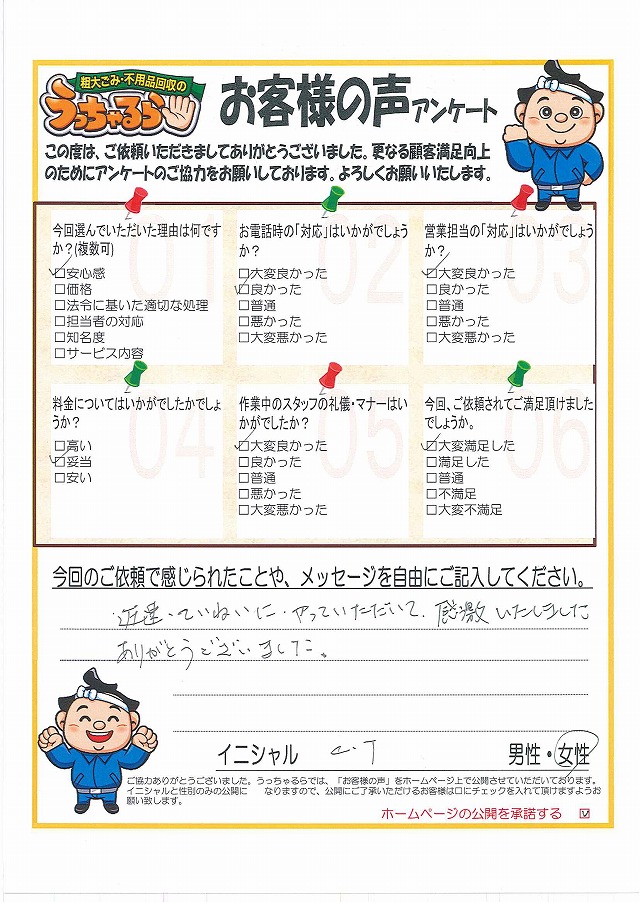 粗大ごみ・不用品回収の
うっちゃるら
お客様の声アンケート
この度は、ご依頼いただきましてありがとうございました。更なる顧客満足向上
のためにアンケートのご協力をお願いしております。よろしくお願いいたします。
01
今回選んでいただいた理由は何です
か？(複数可)
☑安心感
□価格
□法令に基いた適切な処理
□担当者の対応
□知名度
□サービス内容
02
お電話時の「対応」はいかがでしょう
か？
□大変良かった
☑良かった
□普通
□悪かった
□大変悪かった
03
営業担当の「対応」はいかがでしょう
か？
☑大変良かった
□良かった
□普通
□悪かった
□大変悪かった
04
料金についてはいかがでしたかでしょ
うか？
□高い
☑妥当
□安い
05
作業中のスタッフの礼儀・マナーはい
かがでしたか？
☑大変良かった
□良かった
□普通
□悪かった
□大変悪かった
06
今回、ご依頼されてご満足頂けました
でしょうか。
☑大変満足した
□満足した
□普通
□不満足
□大変不満足
今回のご依頼で感じられたことや、メッセージを自由にご記入してください。
迅速・ていねいに・やっていただいて、感激いたしました
ありがとうございました。
イニシャル T 男性・女性
ご協力ありがとうございました。うっちゃるらでは、「お客様の声」をホームページ上で公開させていただいております。
イニシャルと性別のみの公開に なりますので、公開にご了承いただけるお客様は口にチェックを入れて頂けますようお
願い致します。
ホームページの公開を承諾する ☑